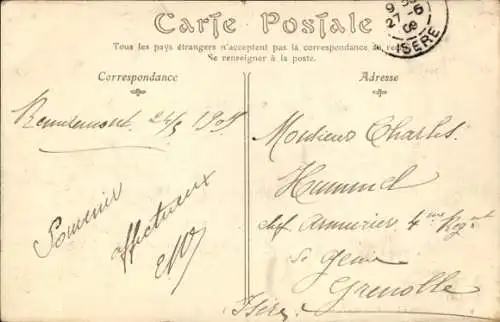 Carte Postale
Tous les pays étrangers n'acceptent pas la correspondance au recto
Se renseigner à la poste.
Correspondance
Adresse
9
27-5
09
ISÈRE
24/5 1909
Souvenir
affectueux
Monsieur Charles
Hummel
chef Armurier 4me Regnt
de Génie
Grenoble
Isère